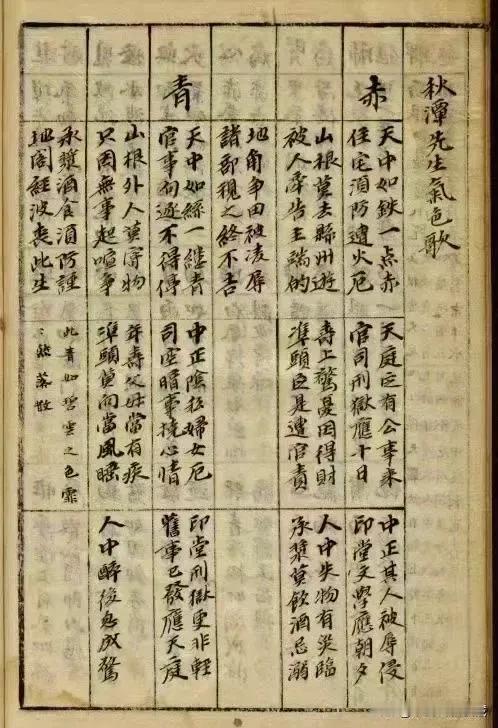 秋潭先生氣色歌
赤
天中如鉄一点赤
住宅須防遭火厄
天庭巨有公事来
官司刑獄應十日
中正其人被辱侵
印堂文學應朝夕
山根莫去縣州遊
被人牽告主端的
壽上驚憂因得財
準頭巨是遭官責
人中失物有災臨
承漿莫飲酒忌溺
地角争田被凌辱
諸部現之終不吉
青
天中如絲一継青
官事向逐不得停
中正陰私婦女厄
司空暗事撓心情
印堂刑獄更非輕
舊事已發應天庭
山根外人莫寄物
只因無事起喧爭
年壽父母當有疾
準頭莫向當風睡
人中醉後忽成驚
承漿酒食須防誣
地閣經波喪此生
此青如碧雲之色霏
然落散